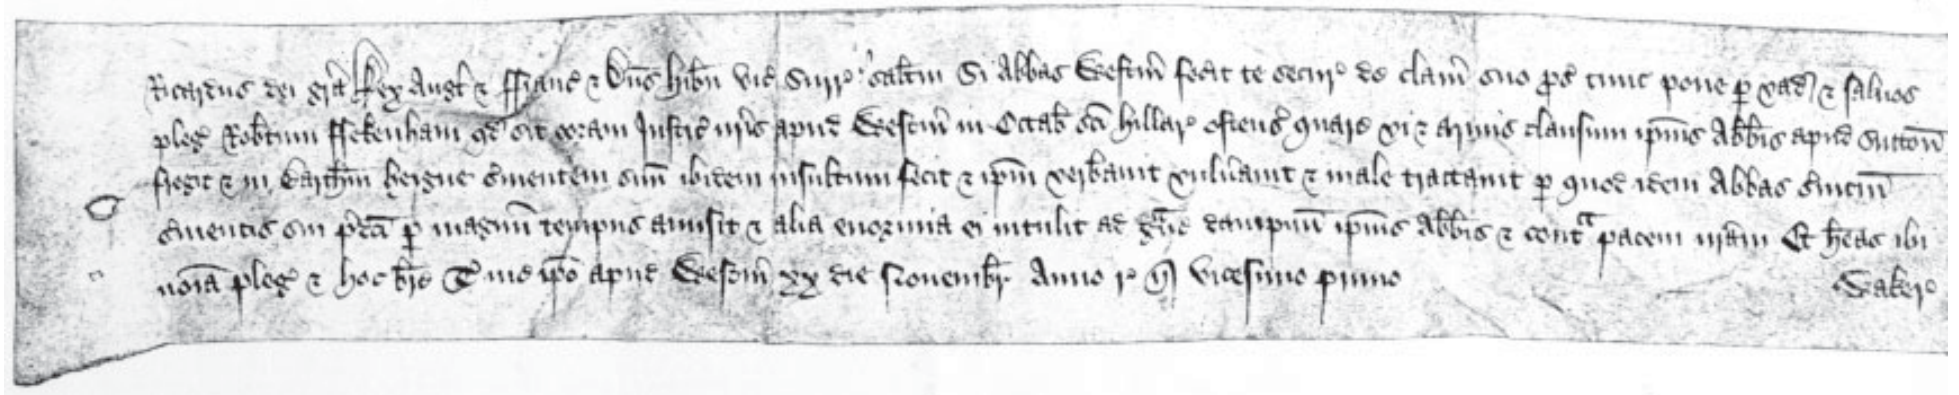 Ricardus dei gr̄a Rex Angl̄ & Ffranc̄ & Dn̄s hib̄n vic̄ Surr' salt̄m Si Abbas Westm̄ fec̄it te secur' de clam̄ suo p̄s tunc pone p̱ vad̄ & salvos
pleḡ Rob̄tum Ffekenham qd̄ sit coram Justic̄ nr̄is apud Westm̄ in Octab̄ sc̄i hillar' ostens̄ quare vi & armis clausum ip̄ius Abb̄is apud Sutton̄
fregit & in Barth̄m servientem suū ibidem insultum fecit & ip̄m verb̄avit vuln̄avit & male tractavit p̱ quod idem Abbas s̄vicm̄
s̄vientis sui p̄dc̄i p̱ magnū tempus amisit & alia enormia ei intulit ad gͣve dampnū ip̄ius Abb̄is & contͣ pacem nr̄am Et h̄eas ibi
noīa pleḡ & hoc br̄e T' me ip̄o apud Westm̄ xx die Novembr̄ Anno r' n̄ Vicesimo primo
Waker'